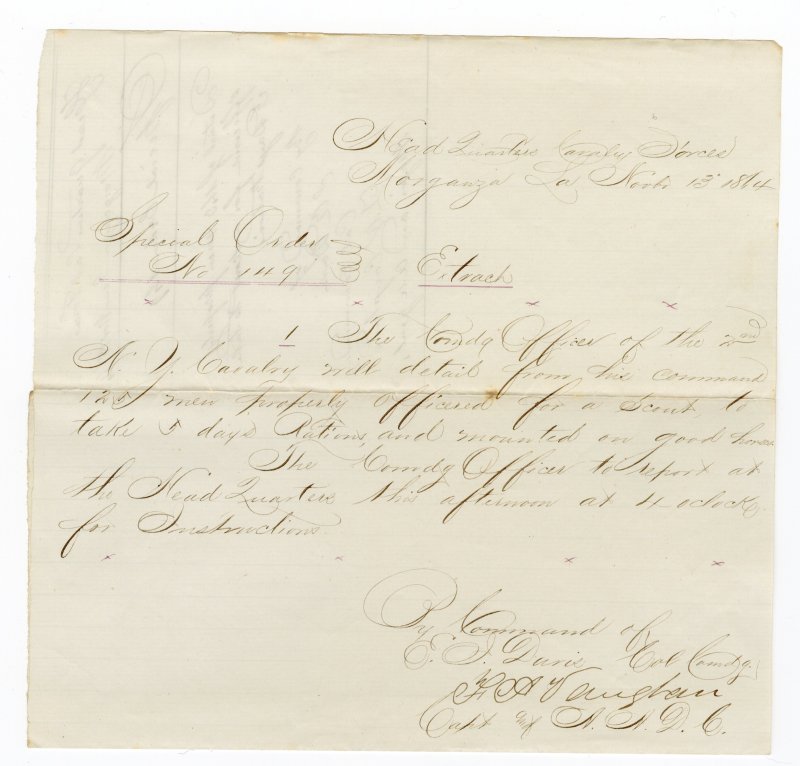 Head Quarters Cavalry Forces
Morganza La Novbr 13" 1864
Special Order
No 119
Extract
x x x x
1 The Comdg Officer of the 2nd
N. Y. Cavalry will detail from his command
125 men properly officered for a Scout, to
take 5 days Rations, and mounted on good horses
The Comdg Officer to report at
the Head Quarters this afternoon at 4 oclock
for Instructions.
x x x x
By Command of
E. J. Davis Col Comdg.
F A Vaughan
Capt & A. A. D. C.